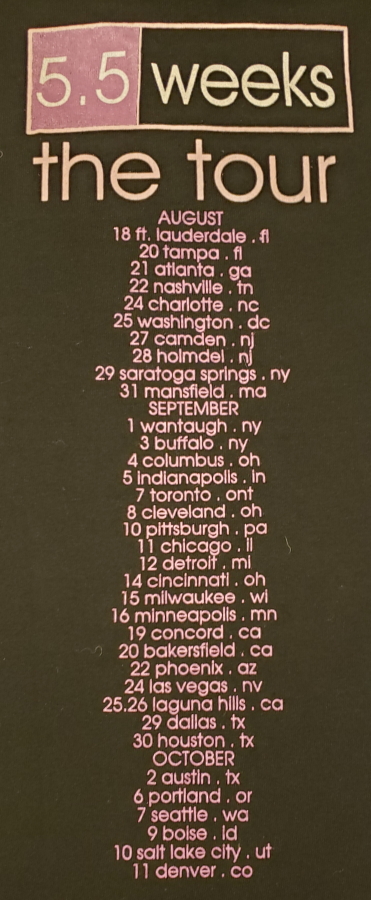 5.5 weeks
the tour
AUGUST
18 ft. lauderdale . fl
20 tampa . fl
21 atlanta . ga
22 nashville . tn
24 charlotte . nc
25 washington . dc
27 camden . nj
28 holmdel . nj
29 saratoga springs . ny
31 mansfield . ma
SEPTEMBER
1 wantaugh . ny
3 buffalo . ny
4 columbus . oh
5 indianapolis . in
7 toronto . ont
8 cleveland . oh
10 pittsburgh . pa
11 chicago . il
12 detroit . mi
14 cincinnati . oh
15 milwaukee . wi
16 minneapolis . mn
19 concord . ca
20 bakersfield . ca
22 phoenix . az
24 las vegas . nv
25.26 laguna hills . ca
29 dallas . tx
30 houston . tx
OCTOBER
2 austin . tx
6 portland . or
7 seattle . wa
9 boise . id
10 salt lake city . ut
11 denver . co